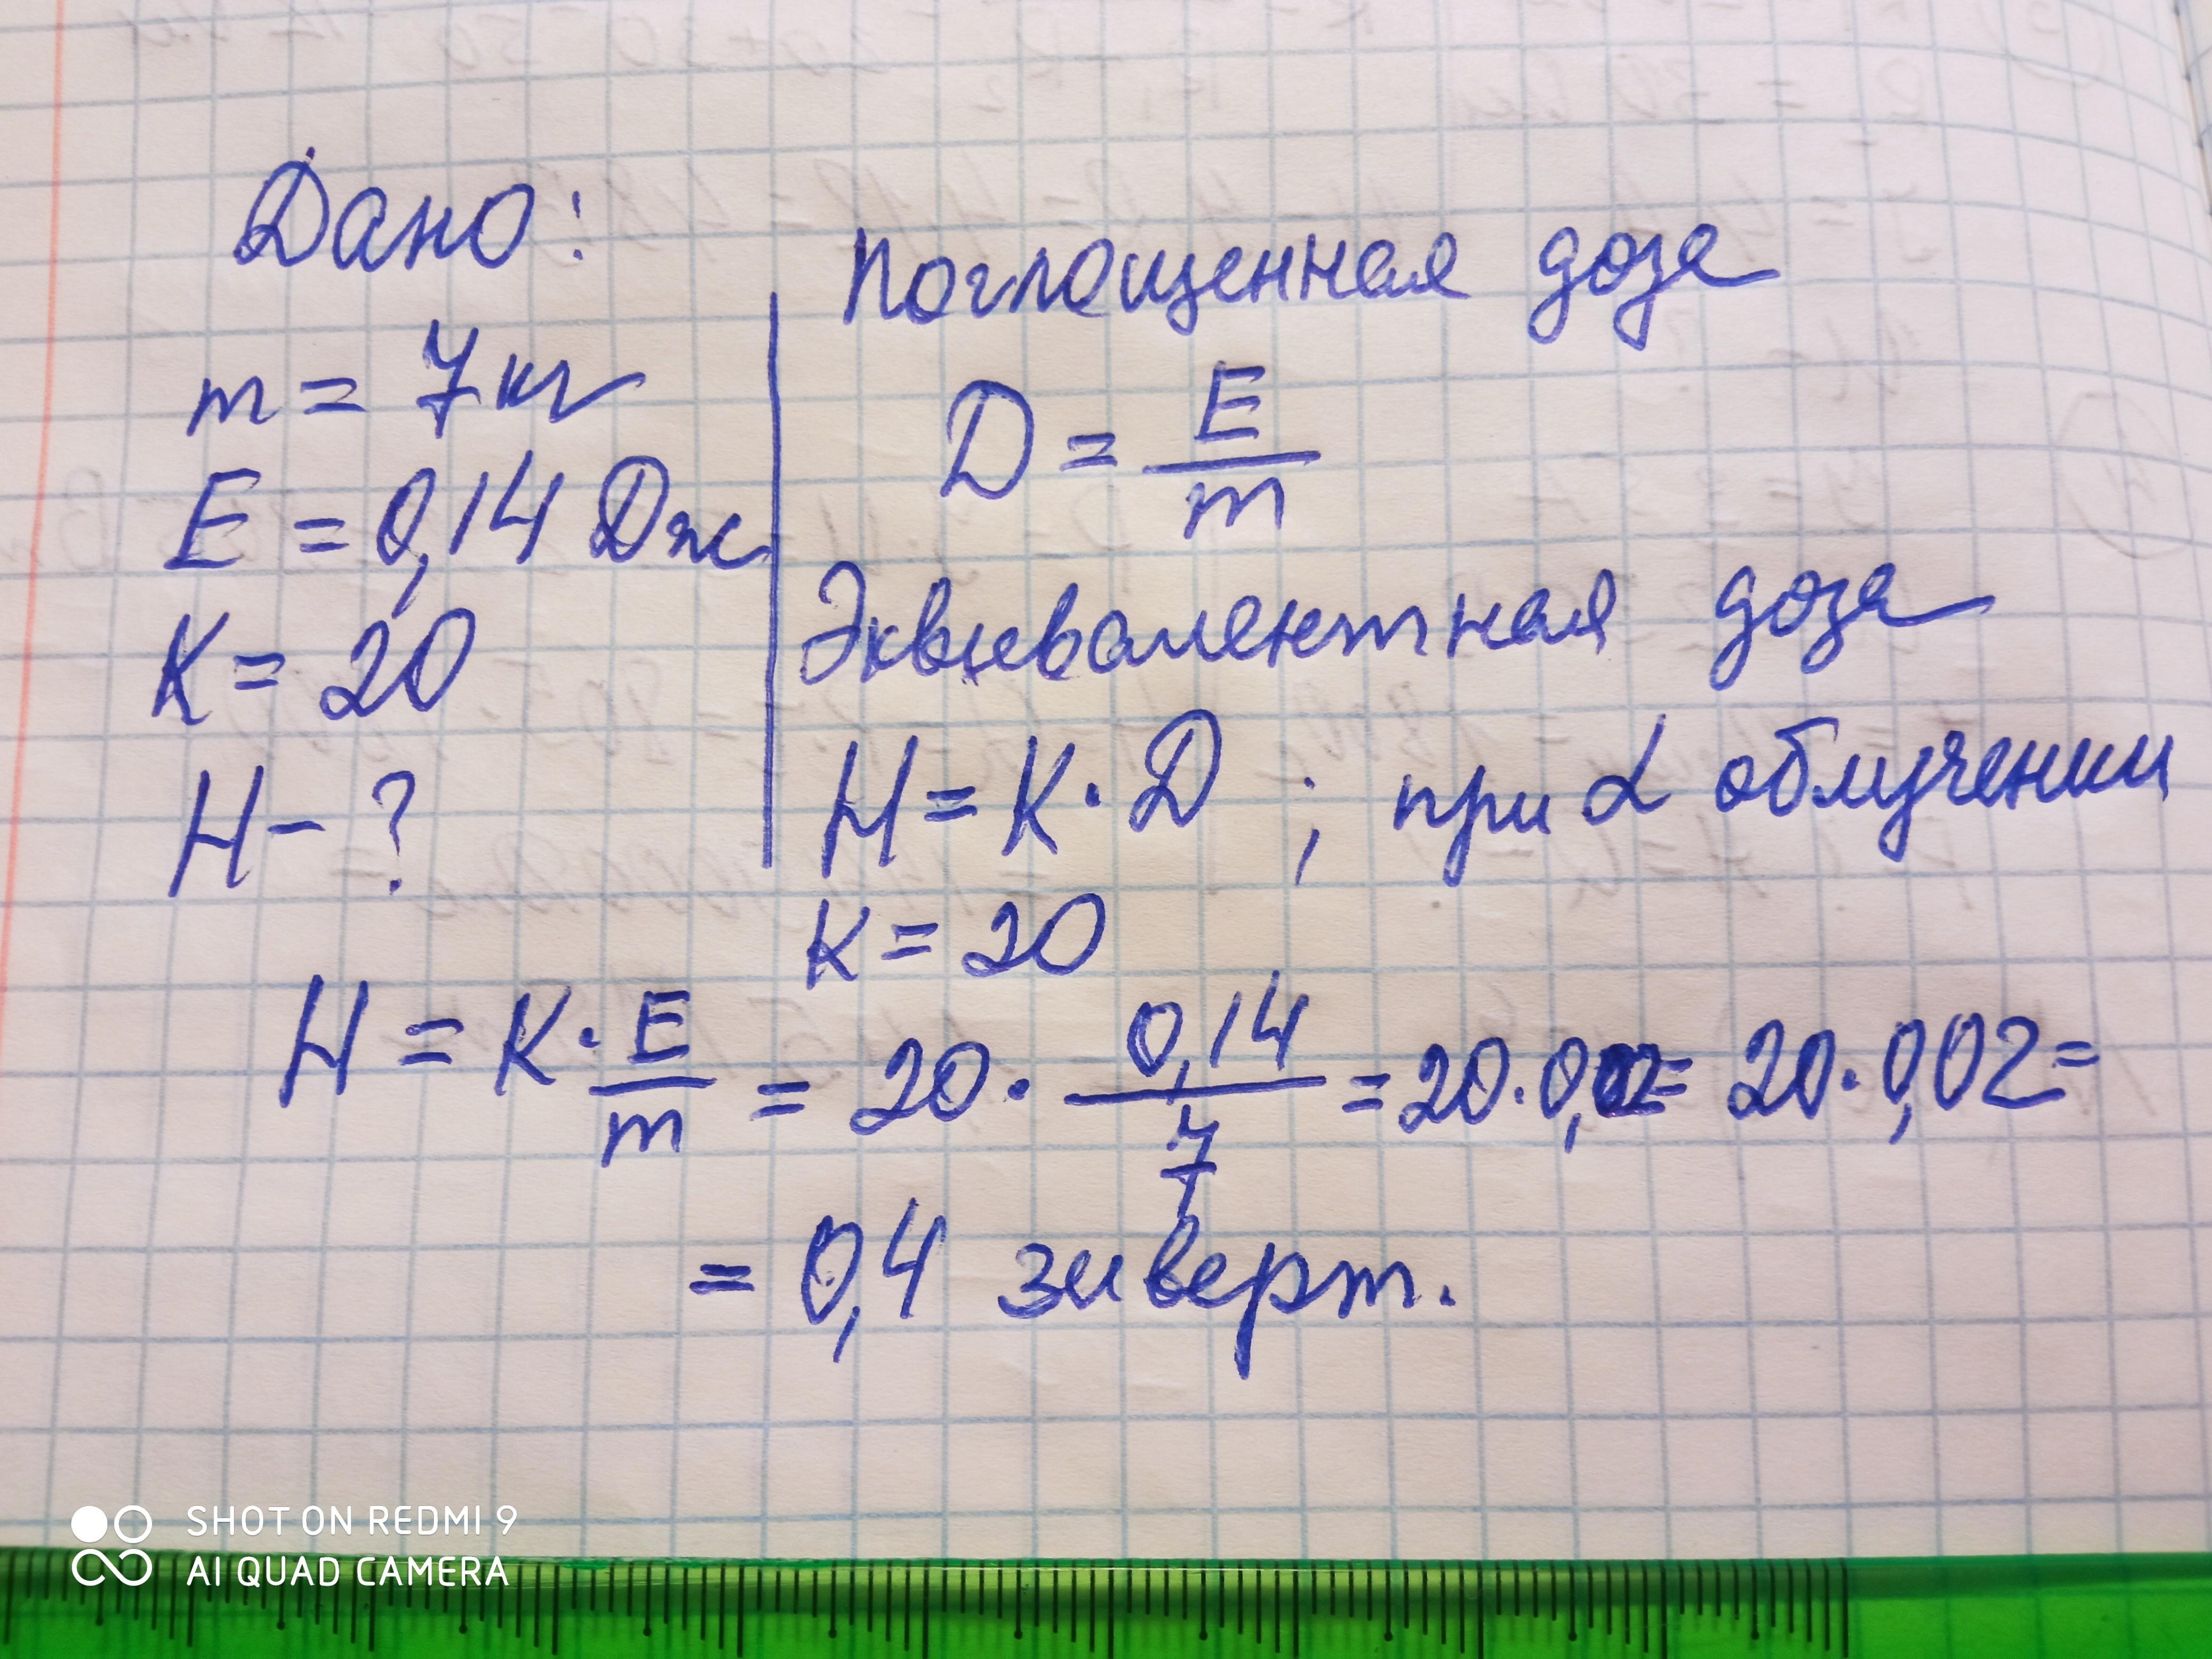 Дано:
m = 7 кг
E = 0,14 Дж
K = 20
H - ?
Поглощенная доза
D = E/m
Эквивалентная доза
H = K · D ; при α облучении
K = 20
H = K · E/m = 20 · 0,14/7 = 20 · 0,02 = 20 · 0,02 =
= 0,4 зиверт.
SHOT ON REDMI 9
AI QUAD CAMERA